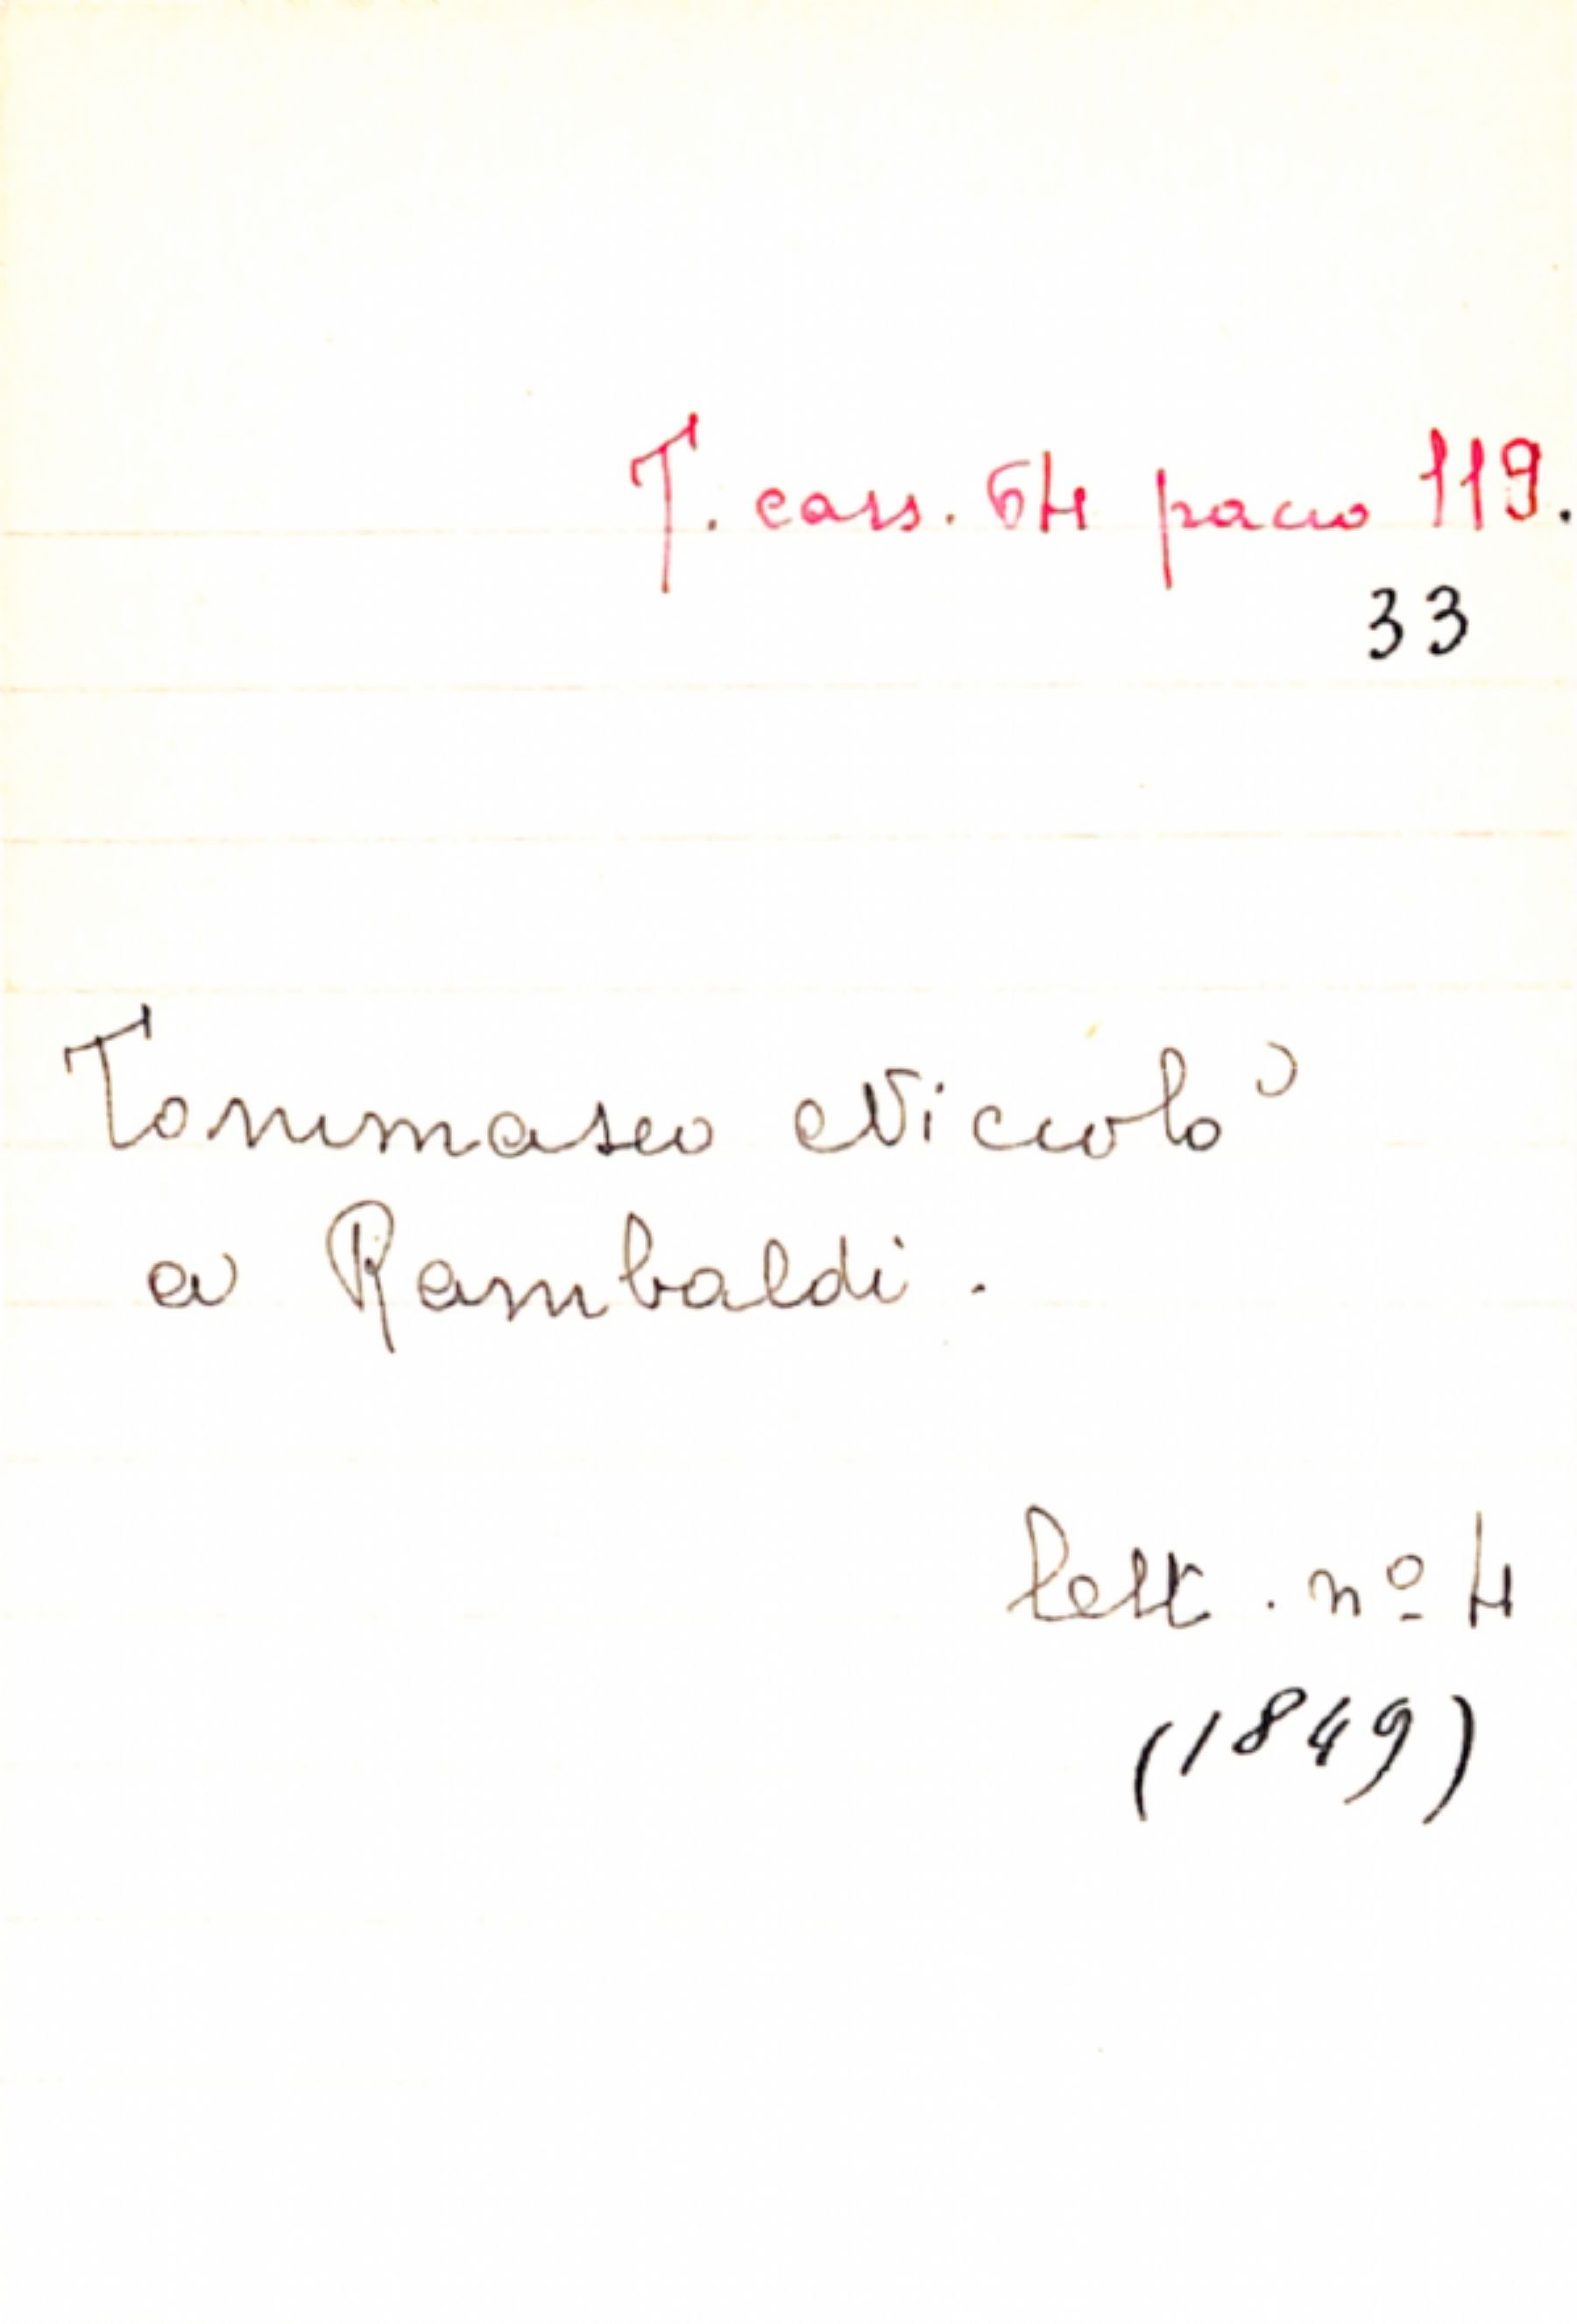 T. cass. 64 pacco 119.
33
Tommaseo Niccolò
a Rambaldi.
lett. nº 4
(1849)